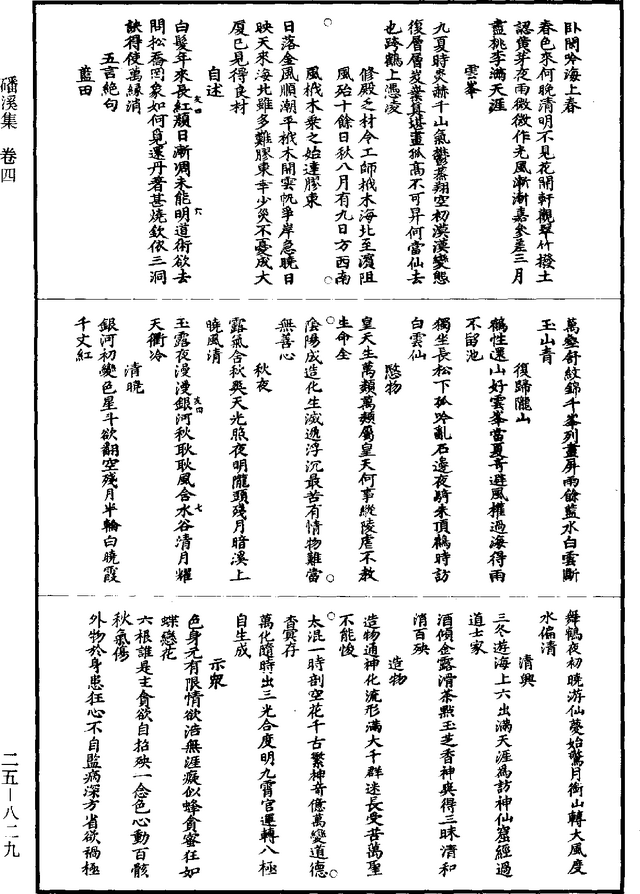 臥閑吟海上春
春色來何晚清明不見花開軒觀翠竹撥土
認黃芽夜雨微微作光風漸漸嘉參差三月
盡桃李滿天涯
雲峯
九夏時炎赫千山氣鬱蒸翔空初漠漠變態
復層層炭業真堪畫孤高不可昇何當仙去
也跨鶴上憑凌
修殿之材令工師栰木海北至濱阻
風殆十餘日秋八月有九日方西南
風栰木乘之始達膠東
日落金風順潮平栰木開雲帆爭岸急曉日
映天來海北雖多難膠東幸少災不憂成大
厦已見得良材
自述
白髮年來長紅顏日漸凋未能明道術欲去
問松喬罔象如何覓還丹著甚燒欽依三洞
訣得使萬緣消
五言絕句
藍田
萬壑舒紋錦千峯列畫屏雨餘藍水白雲斷
玉山青
復歸隴山
鶴性還山好雲峯當夏奇避風權過海得雨
不留池
獨坐長松下孤吟亂石邊夜騎朱頂鶴時訪
白雲仙
愍物
皇天生萬類萬類屬皇天何事縱陵虐不教
生命全
陰陽成造化生滅遞浮沉最苦有情物難當
無善心
秋夜
露氣含秋爽天光照夜明隴頭殘月暗溪上
曉風清
玉露夜漫漫銀河秋耿耿風含水谷清月耀
天衢冷
清曉
銀河初變色星斗欲翻空殘月半輪白曉霞
千丈紅
舞鶴夜初曉游仙夢始驚月銜山轉大風度
水偏清
清興
三冬遊海上六出滿天涯為訪神仙窟經過
道士家
酒傾金露滑茶點玉芝香神爽得三昧清和
消百殃
造物
造物通神化流形滿大千群迷長受苦萬聖
不能悛
太混一時剖空花千古繁神奇億萬變道德
杳冥存
萬化隨時出三光合度明九霄官運轉八極
自生成
示衆
色身元有限情欲浩無涯癡似蜂貪蜜狂如
蝶戀花
六根誰是主貪欲自招殃一念色心動百骸
秋氣傷
外物於身患狂心不自監病深方省欲禍極
磻溪集　卷四
二五—八二九